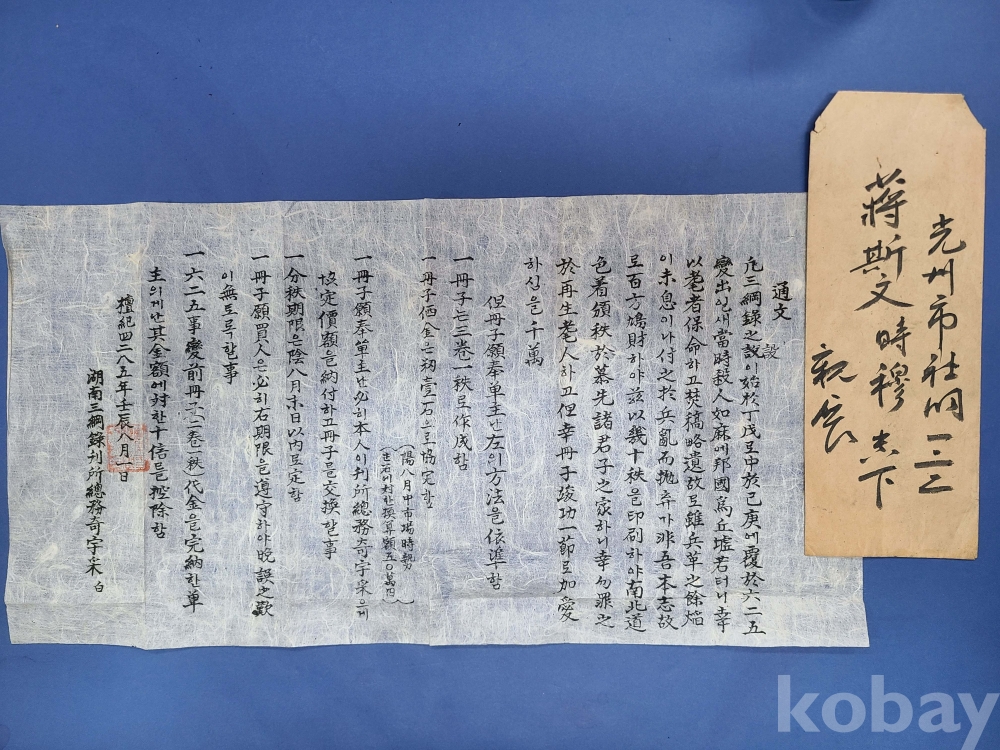 通文
凡三綱錄之設이始於丁戊로中於己庚에覆於六二五
變出인새當時殺人如麻에邦國爲丘墟君터니幸
以老者保命하고焚稿略遺故로雖兵革之餘焰
이未息이나付之於兵亂而抛弃가非吾本志故
로百方鳩財하야茲以幾十秩을印刷하야南北道
色着頒秩於慕先諸君子之家하니幸勿罪之
於再生老人하고但幸冊子竣功一節로加愛
하심을千萬
但冊子願奉單主난左의方法을依準함
一冊子는三卷一秩로作成함
一冊子価金은籾壹石으로協定함
(陽八月中市場時勢
壹石에対한換算額五○萬四)
一冊子願奉單主난必히本人이刊所總務奇宇采의게
協定價額을納付하고冊子를交換할事
一分秩期限은陰八月末日以內로定함
一冊子願買人은必히右期限을遵守하야晩誤之歎
이無토록할事
一六二五事變前冊子二卷一秩代金을完納한單
主의게난其金額에対한十倍를控除함
檀紀四二八五年壬辰八月一日
湖南三綱錄刊所總務奇宇采 白
光州市社洞一二二
蔣斯文 時穆 座下
親展
kobay